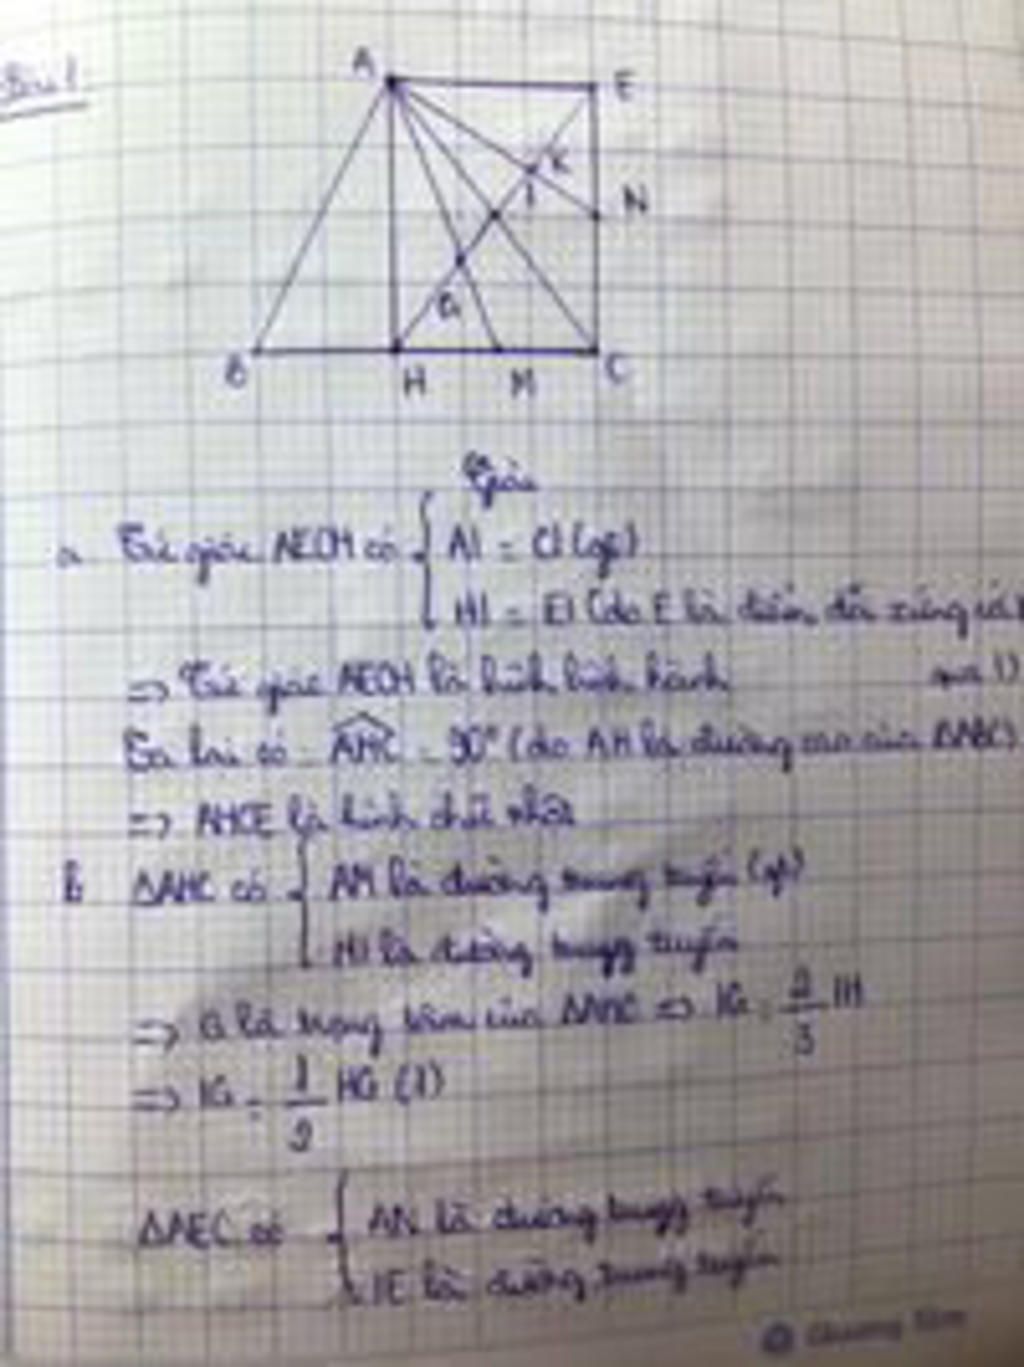 A E
K
I N
G
B H M C
Giải
a Tứ giác AECH có { AI = CI (gt)
HI = EI (do E là điểm đối xứng của H
=> Tứ giác AECH là hình bình hành qua I)
Ta lại có AHC = 90° (do AH là đường cao của ΔABC)
=> AHCE là hình chữ nhật
b ΔAHC có { AM là đường trung tuyến (gt)
HI là đường trung tuyến
=> G là trọng tâm của ΔAHC => IG = 2/3 IH
=> IG = 1/2 HG (1)
ΔAEC có { AN là đường trung tuyến
IE là đường trung tuyến